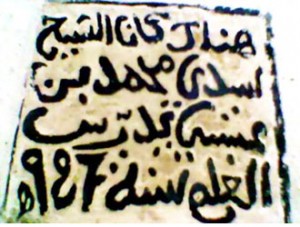 هنا كان الشيخ
سيدي محمد بن
عيسى يدرس
العلم سنة 947